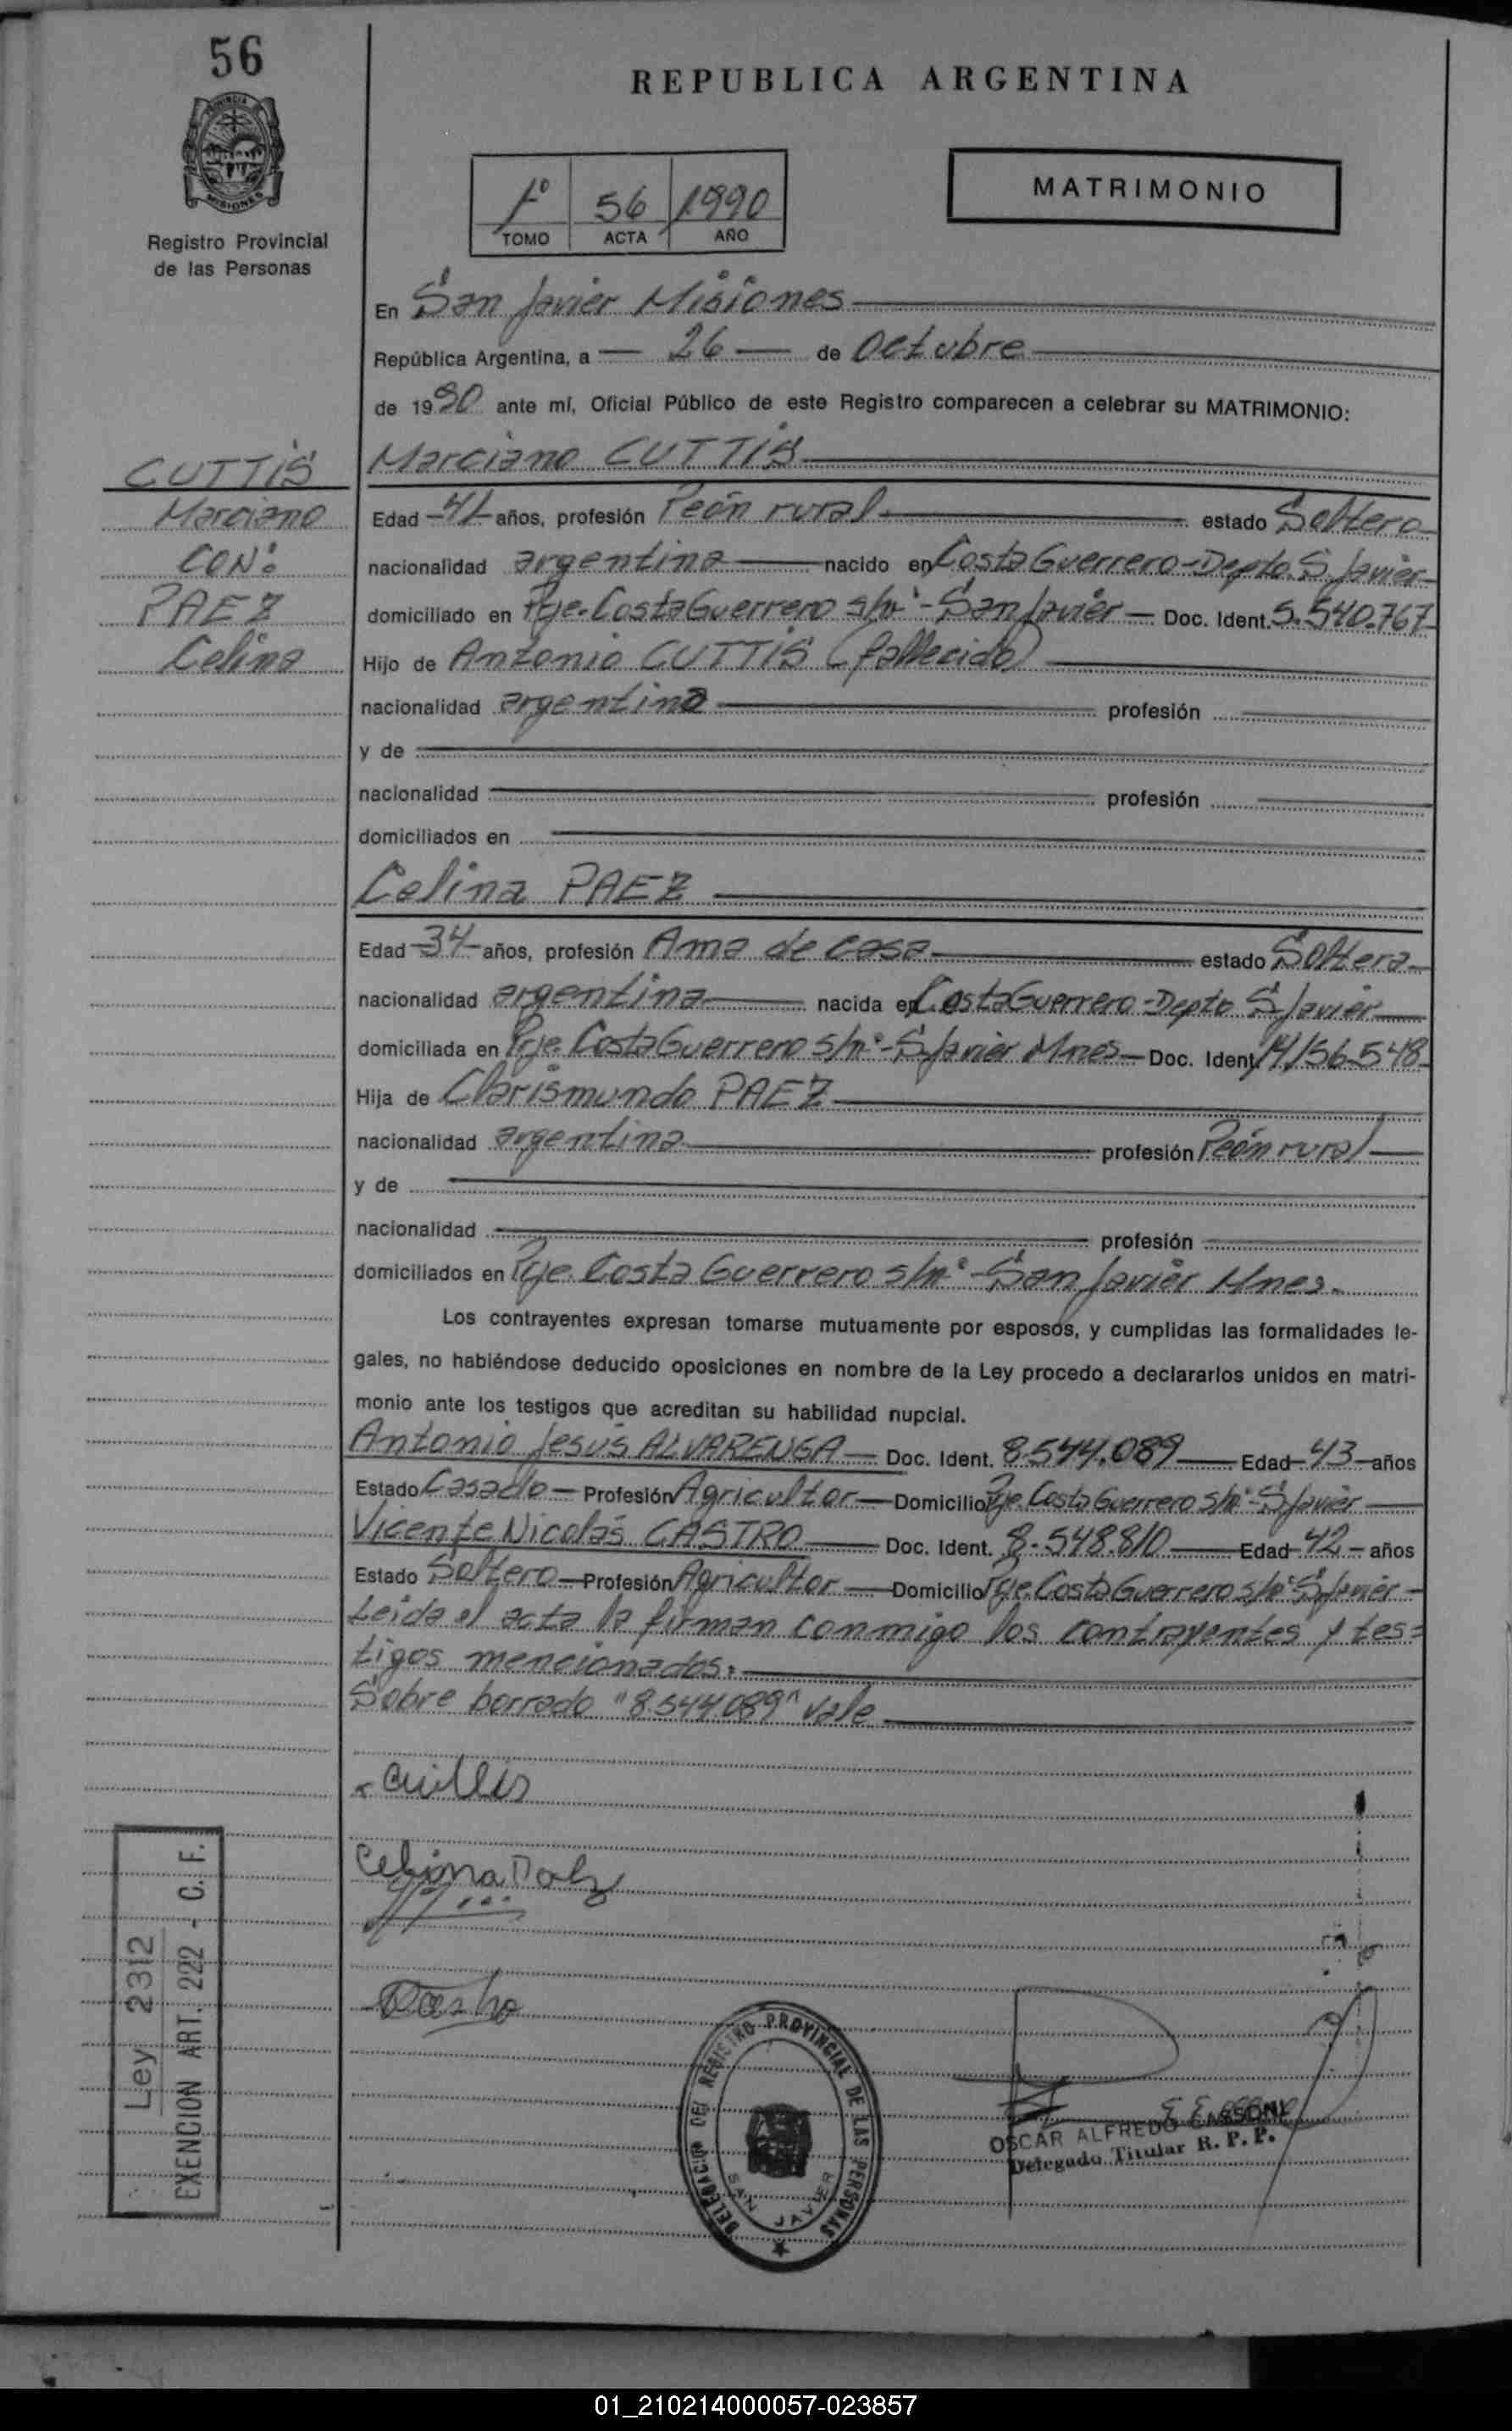 56
REPUBLICA ARGENTINA
PROVINCIA DE MISIONES
Registro Provincial
de las Personas
1º 56 1990
TOMO ACTA AÑO
MATRIMONIO
En San Javier Misiones
República Argentina, a 26 de Octubre
de 1990 ante mí, Oficial Público de este Registro comparecen a celebrar su MATRIMONIO:
CUTTIS
Marciano
CON:
PAEZ
Celina
Marciano CUTTIS
Edad 41 años, profesión Peón rural estado Soltero
nacionalidad argentina nacido en Costa Guerrero-Depto. S. Javier
domiciliado en Pje. Costa Guerrero s/nº - San Javier Doc. Ident. 5.540.767
Hijo de Antonio CUTTIS (fallecido)
nacionalidad argentina profesión
y de
nacionalidad profesión
domiciliados en
Celina PAEZ
Edad 34 años, profesión Ama de casa estado Soltera
nacionalidad argentina nacida en Costa Guerrero-Depto S. Javier
domiciliada en Pje. Costa Guerrero s/nº - S. Javier Mnes Doc. Ident. 14156548
Hija de Clarismundo PAEZ
nacionalidad argentina profesión Peón rural
y de
nacionalidad profesión
domiciliados en Pje. Costa Guerrero s/nº - San Javier Mnes.
Los contrayentes expresan tomarse mutuamente por esposos, y cumplidas las formalidades le-
gales, no habiéndose deducido oposiciones en nombre de la Ley procedo a declararlos unidos en matri-
monio ante los testigos que acreditan su habilidad nupcial.
Antonio Jesús ALVARENGA Doc. Ident. 8.544.089 Edad 43 años
Estado Casado Profesión Agricultor Domicilio Pje. Costa Guerrero s/nº - S. Javier
Vicente Nicolás CASTRO Doc. Ident. 8.548.810 Edad 42 años
Estado Soltero Profesión Agricultor Domicilio Pje. Costa Guerrero s/nº S. Javier
Leida el acta la firman conmigo los contrayentes y tes=
tigos mencionados.
Sobre borrado "8.544.089" vale
Cuttis
Celina Paez
Castro
Ley 2312
EXENCION ART. 222 - C. F.
DELEGACION DEL REGISTRO PROVINCIAL DE LAS PERSONAS
SAN JAVIER
OSCAR ALFREDO CASSONI
Delegado Titular R. P. P.
01_210214000057-023857